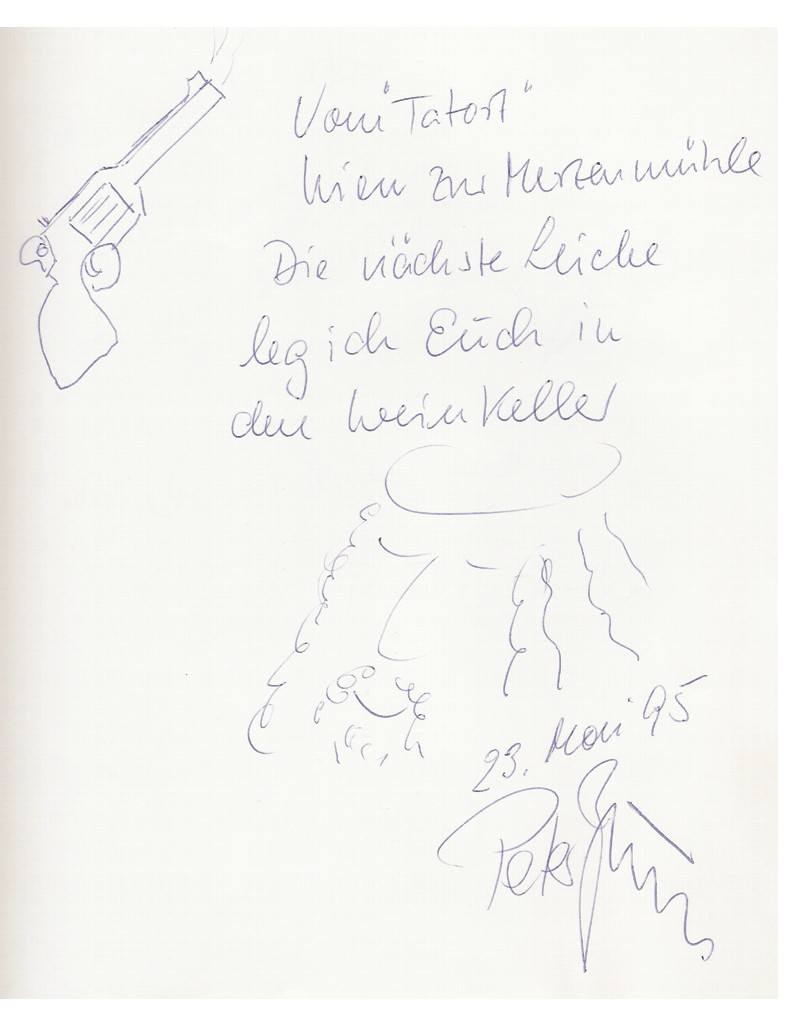 Vom "Tatort"
Wien zur Merzenmühle
Die nächste Leiche
leg ich Euch in
den Weinkeller
23. Mai '95
Peter